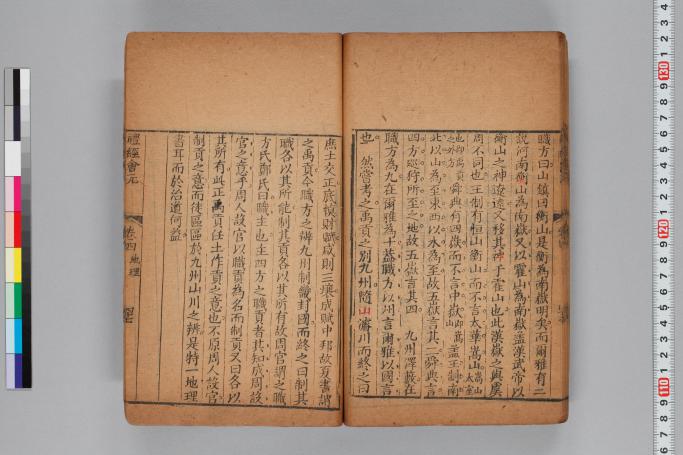 職方曰山鎮曰衡山是衡為南嶽明矣而爾雅有二
說河南衡山為南嶽又以霍山為南嶽蓋漢武帝以
衡山之神遼遠又移其神于霍山也此漢嶽之與虞
周不同也王制有恒山衡山而不言太華嵩山
舜典有四嶽而不言中嶽 蓋王制南
北以山為至東西以水為至故五嶽言其二舜典言
四方巡狩所至之地故五嶽言其四 九州澤藪在
職方為九在爾雅為十蓋職方以州言爾雅以國言
也 然嘗考之禹貢之別九州隨山濬川而終之曰
庶土交正底慎財賦咸則三壤成賦中邦故夏書謂
之禹貢今職方之辨九州制畿封國而終之曰制其
職各以其所能制其貢各以其所有故周官謂之職
方氏鄭氏曰職主也主四方之職貢者其知成周設
官之意乎周人設官以職貢為名而制貢又曰各以
其所有此正禹貢任土作貢之意也不原周人設官
制貢之意而徒區區於九州山川之辨是特一地理
書耳而於治道何益
禮經會元
卷四 地理
130
120
110